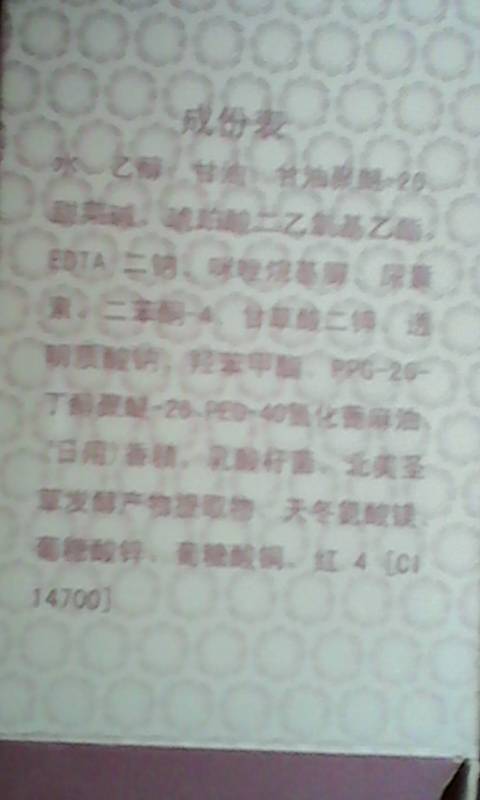 成份表
水、乙醇、甘油、甘油聚醚-26、
甜菜碱、琥珀酸二乙氧基乙酯、
EDTA 二钠、咪唑烷基脲、尿囊
素、二苯酮-4、甘草酸二钾、透
明质酸钠、羟苯甲酯、PPG-26-
丁醇聚醚-26、PEG-40氢化蓖麻油、
(日用)香精、乳酸杆菌、北美圣
草发酵产物提取物、天冬氨酸镁、
葡糖酸锌、葡糖酸铜、红 4 [CI
14700]